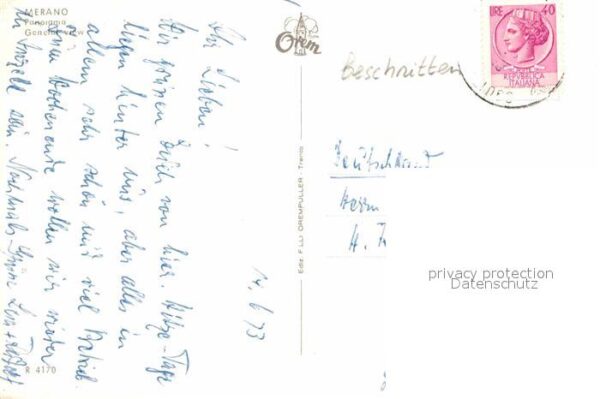 MERANO
Panorama
General view
Orem
LIRE 40
REPUBBLICA
ITALIANA
Beschnitten
14.6.73
Ihr Lieben!
Wir grüssen Euch von hier. Hitze-Tage
liegen hinter uns, aber alles in
allem sehr schön und viel Betrieb.
Wochenende wollen wir wieder
in sein. Nochmals
Deutschland
Herrn
H.
Ediz. F.LLI OREMPULLER - Trento
R 4170
privacy protection
Datenschutz